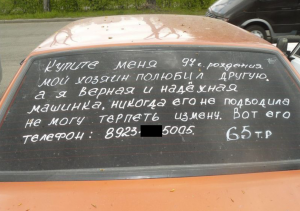 Купите меня 94 г. рождения
мой хозяин полюбил другую,
а я верная и надёжная
машинка, никогда его не подводила
не могу терпеть измену. Вот его
телефон: 8923 5005. 65 т.р